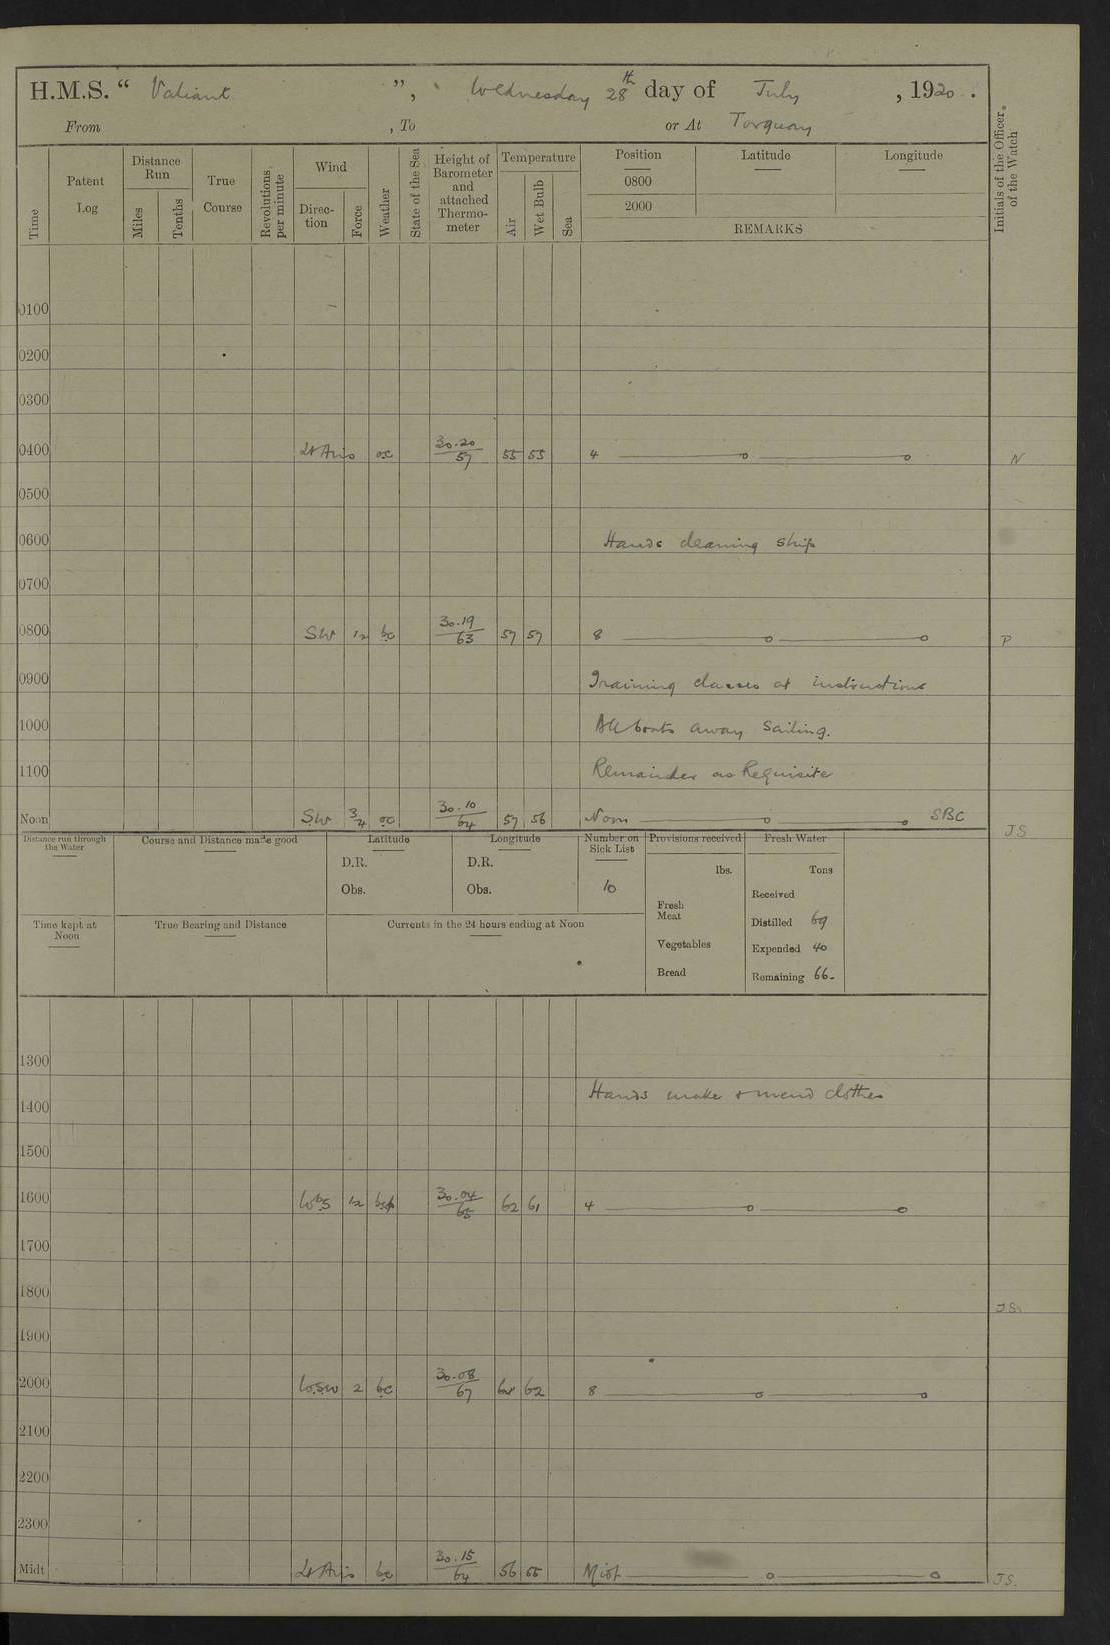 H.M.S. “ Valiant ”, Wednesday 28th day of July , 1920.
From , To or At Torquay
Time
Patent Log
Distance Run
Miles
Tenths
True Course
Revolutions per minute
Wind
Direction
Force
Weather
State of the Sea
Height of Barometer and attached Thermometer
Temperature
Air
Wet Bulb
Sea
Position
0800
2000
Latitude
Longitude
REMARKS
Initials of the Officer of the Watch
0100
0200
0300
0400 Lt Airs oc 30.20 57 55 53 4 N
0500
0600 Hands cleaning ship
0700
0800 SW 1/2 bc 30.19 63 57 57 8 P
0900 Training classes at instructions
1000 All boats away sailing.
1100 Remainder as Requisite
Noon SW 3/4 oc 30.10 64 57 56 Noon SBC JS
Distance run through the Water
Course and Distance made good
Latitude
D.R.
Obs.
Longitude
D.R.
Obs.
Number on Sick List
10
Provisions received
lbs.
Fresh Meat
Vegetables
Bread
Fresh Water
Tons
Received
Distilled 69
Expended 40
Remaining 66-
Time kept at Noon
True Bearing and Distance
Currents in the 24 hours ending at Noon
1300
1400 Hands make & mend clothes
1500
1600 WbS 1/2 30.04 65 62 61 4
1700
1800 JS.
1900
2000 WSW 2 bc 30.08 67 62 8
2100
2200
2300
Midt Lt Airs bc 30.15 64 56 55 Midt JS.